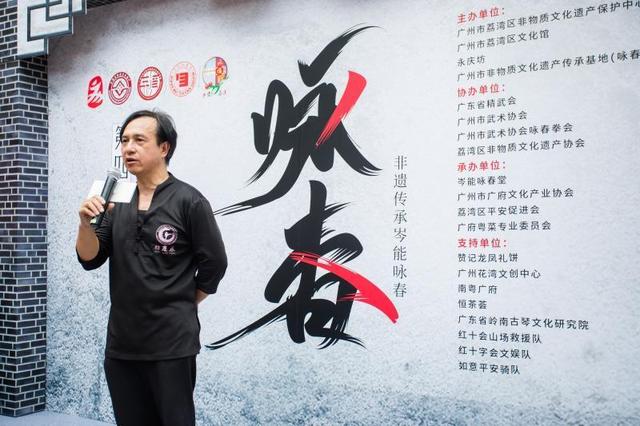 第
四
咏春
非遗传承岑能咏春
主办单位:
广州市荔湾区非物质文化遗产保护中心
广州市荔湾区文化馆
永庆坊
广州市非物质文化遗产传承基地(咏春
协办单位:
广东省精武会
广州市武术协会
广州市武术协会咏春拳会
荔湾区非物质文化遗产协会
承办单位:
岑能咏春堂
广州市广府文化产业协会
荔湾区平安促进会
广府粤菜专业委员会
支持单位:
赞记龙凤礼饼
广州花湾文创中心
南粤广府
恒茶荟
广东省岭南古琴文化研究院
红十会山场救援队
红十字会文娱队
如意平安骑队